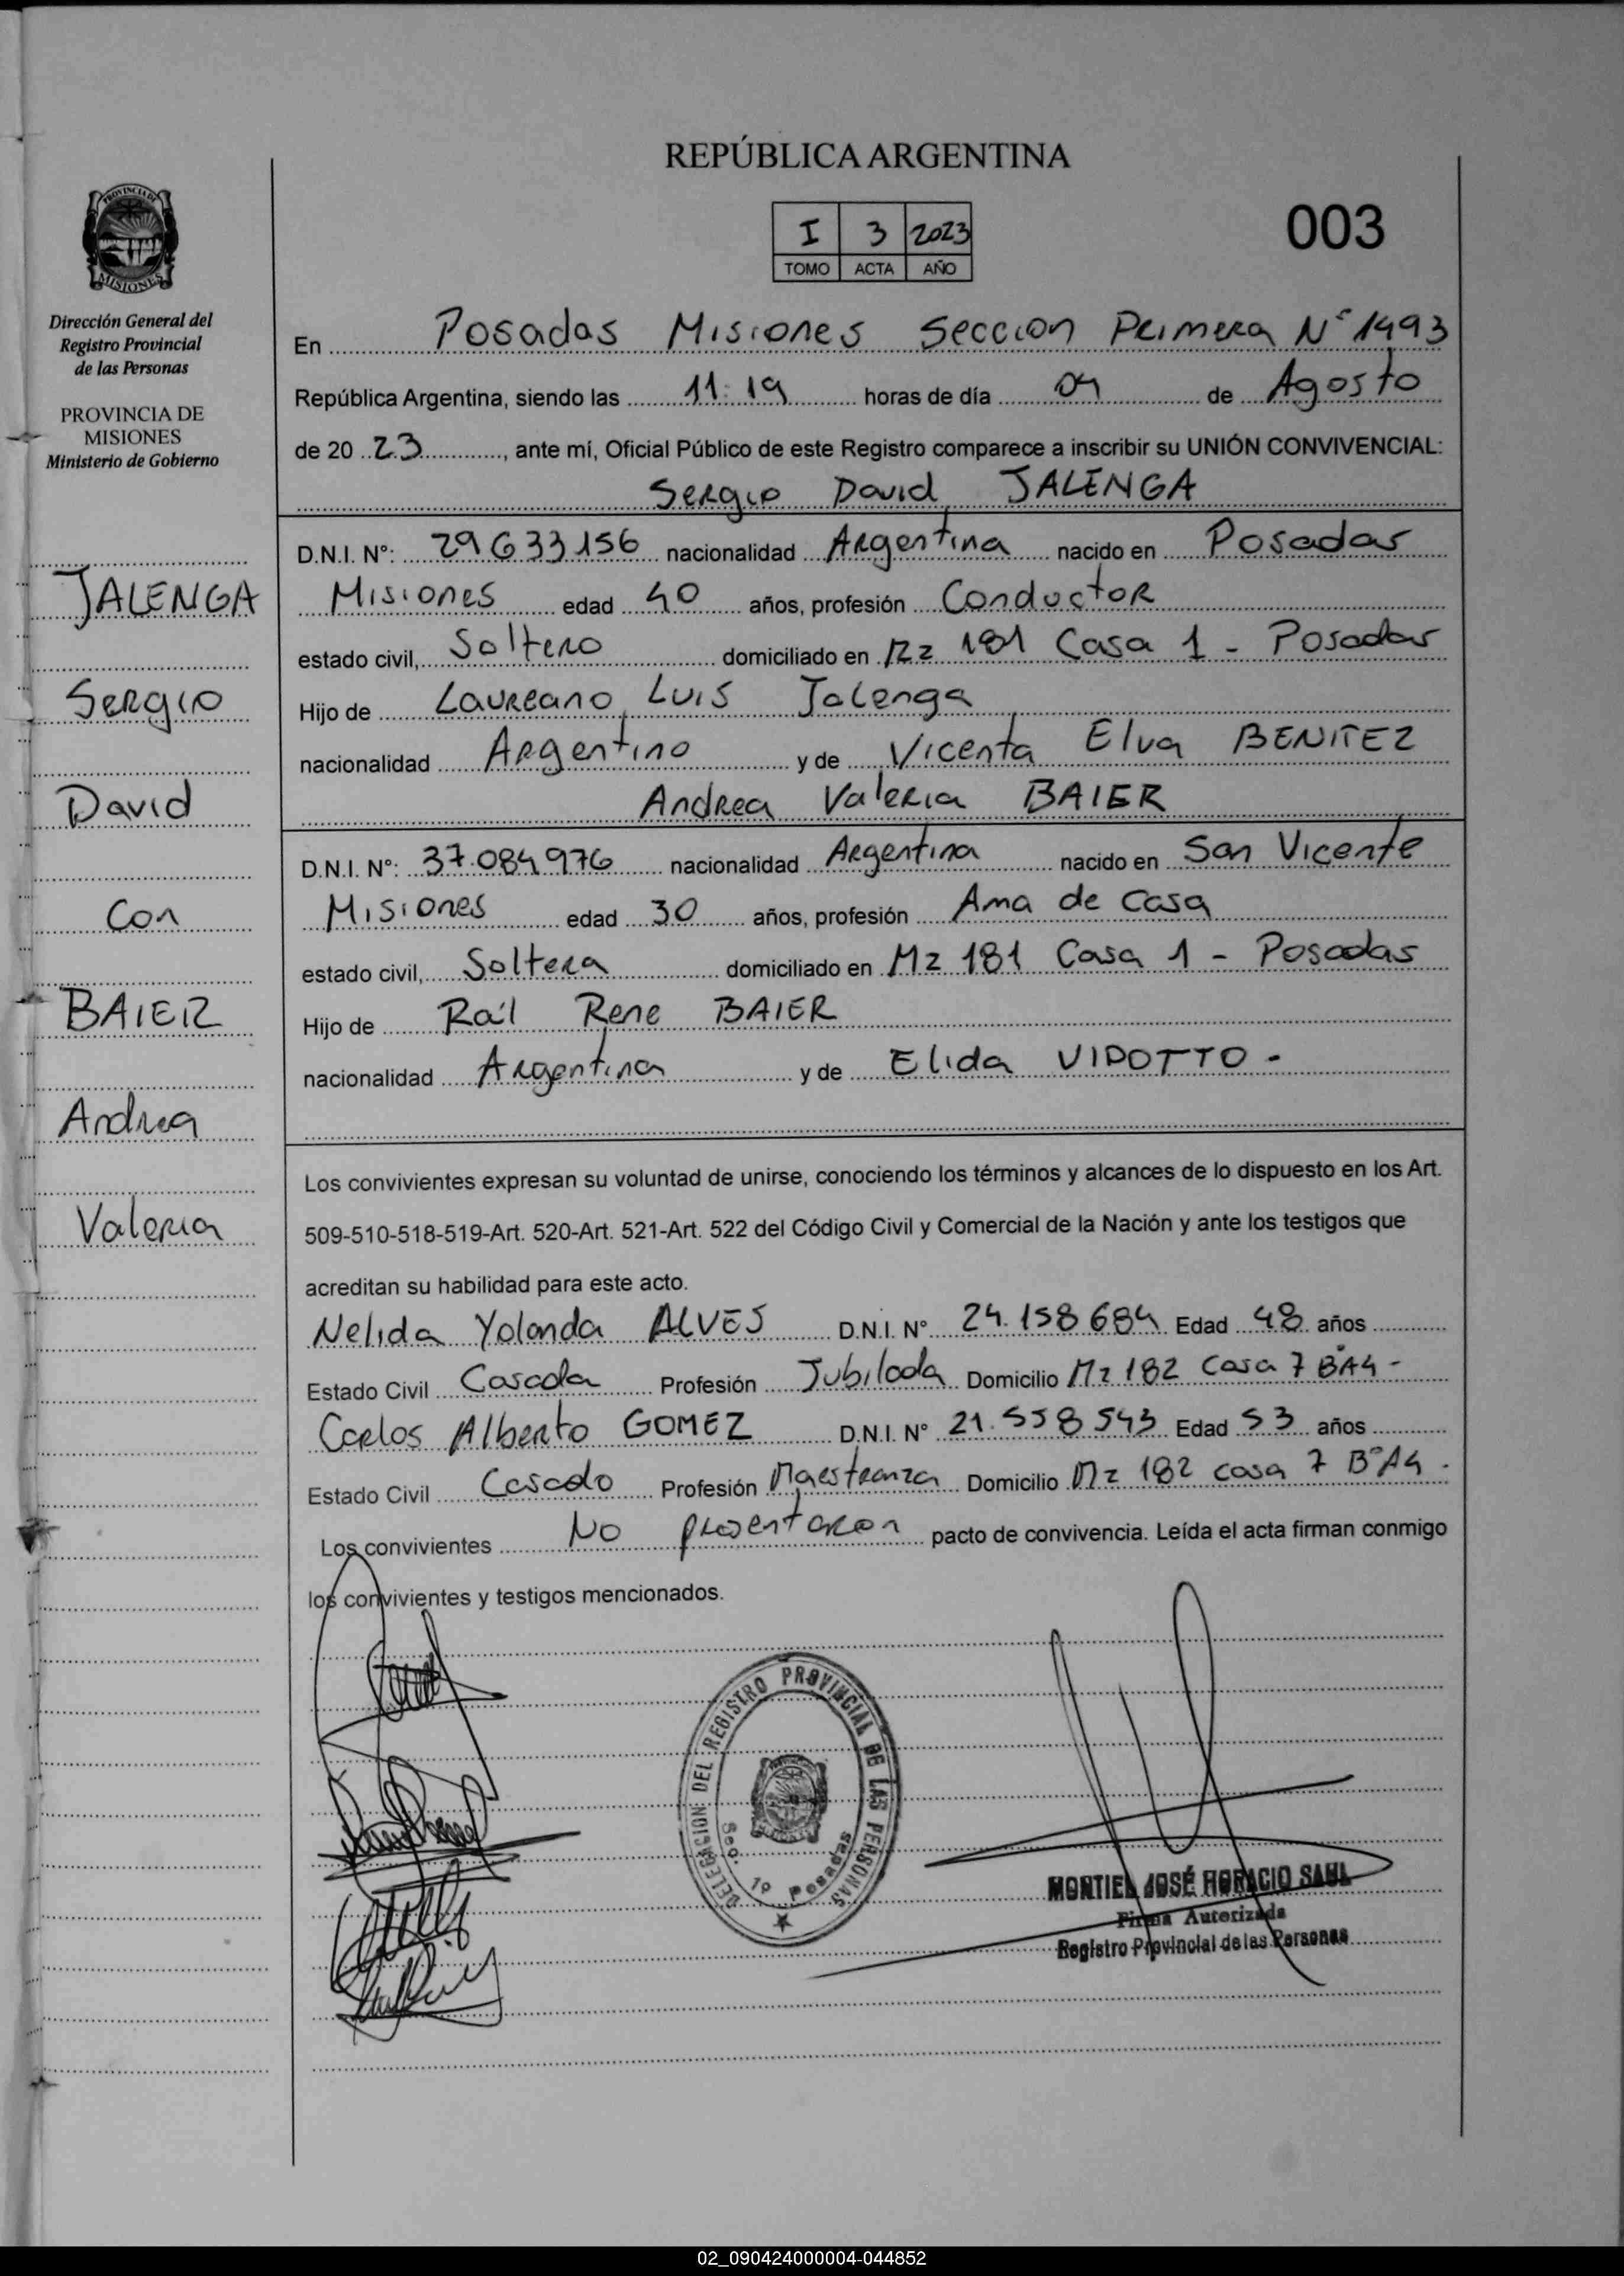 REPÚBLICA ARGENTINA
003
I 3 2023
TOMO ACTA AÑO
PROVINCIA DE
MISIONES
Dirección General del
Registro Provincial
de las Personas
PROVINCIA DE
MISIONES
Ministerio de Gobierno
JALENGA
Sergio
David
Con
BAIER
Andrea
Valeria
En Posadas Misiones Seccion Primera N° 1493
República Argentina, siendo las 11:19 horas de día 04 de Agosto
de 20 23, ante mí, Oficial Público de este Registro comparece a inscribir su UNIÓN CONVIVENCIAL:
Sergio David JALENGA
D.N.I. N°: 29633156 nacionalidad Argentina nacido en Posadas
Misiones edad 40 años, profesión Conductor
estado civil, Soltero domiciliado en Mz 181 Casa 1 - Posadas
Hijo de Laureano Luis Jalenga
nacionalidad Argentino y de Vicenta Elva BENITEZ
Andrea Valeria BAIER
D.N.I. N°: 37.084976 nacionalidad Argentina nacido en San Vicente
Misiones edad 30 años, profesión Ama de Casa
estado civil, Soltera domiciliado en Mz 181 Casa 1 - Posadas
Hijo de Raúl Rene BAIER
nacionalidad Argentina y de Elida VIDOTTO -
Los convivientes expresan su voluntad de unirse, conociendo los términos y alcances de lo dispuesto en los Art.
509-510-518-519-Art. 520-Art. 521-Art. 522 del Código Civil y Comercial de la Nación y ante los testigos que
acreditan su habilidad para este acto.
Nelida Yolanda ALVES D.N.I. N° 24.158684 Edad 48 años
Estado Civil Casada Profesión Jubilada Domicilio Mz 182 Casa 7 B°A4 -
Carlos Alberto GOMEZ D.N.I. N° 21.558543 Edad 53 años
Estado Civil Casado Profesión Maestranza Domicilio Mz 182 casa 7 B°A4 -
Los convivientes No presentaron pacto de convivencia. Leída el acta firman conmigo
los convivientes y testigos mencionados.
DELEGACION DEL REGISTRO PROVINCIAL DE LAS PERSONAS
Sec. 1º Posadas
MONTIEL JOSÉ HORACIO SAUL
Firma Autorizada
Registro Provincial de las Personas
02_090424000004-044852